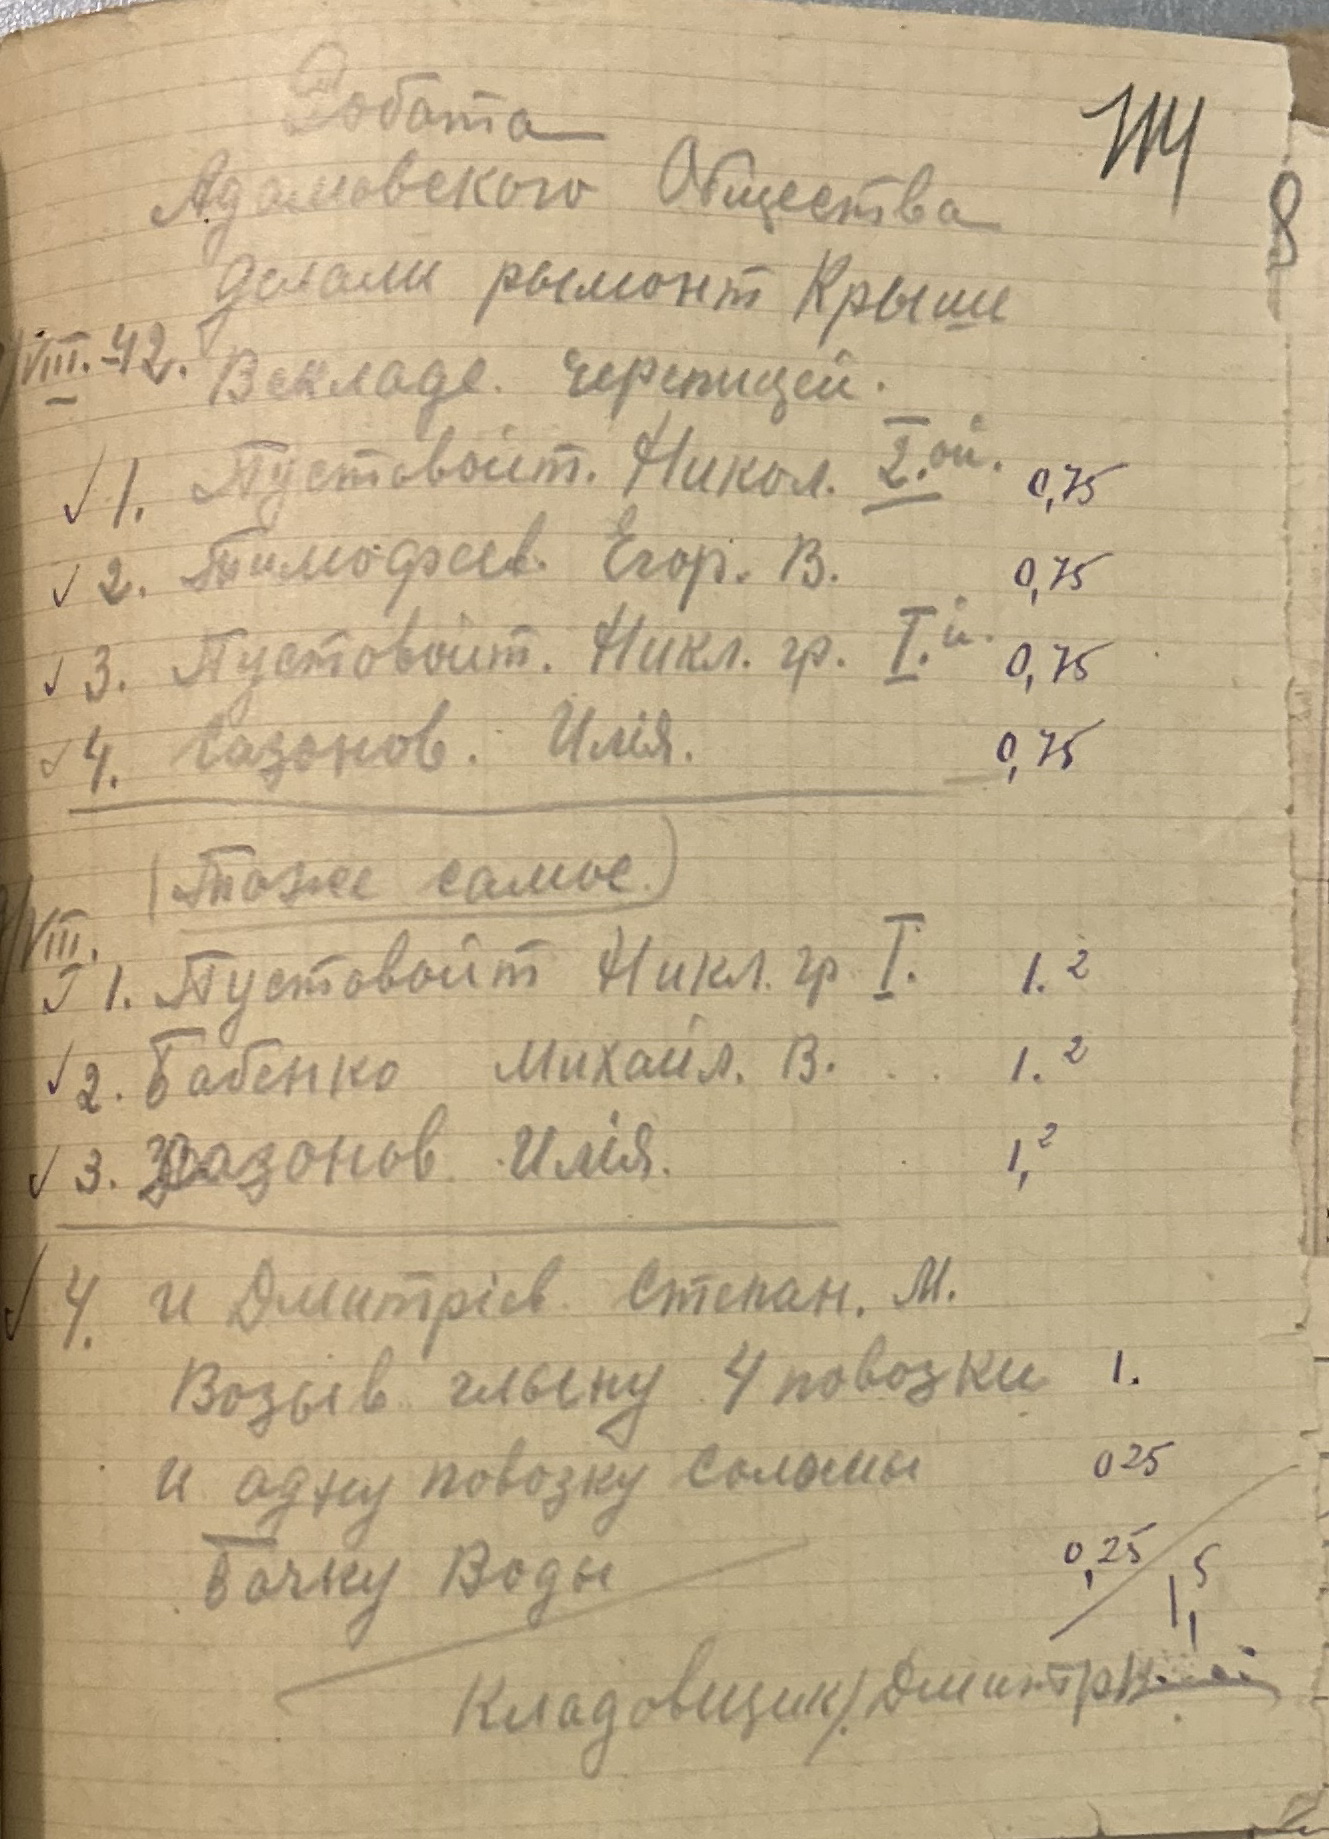 Робота
Адамовского Общества
Делали рымонт Крыши
VIII.-42. В складе. черепицей.
1. Пустовойт. Никол. 2.ой. 0,75
2. Тимофеев. Егор. В. 0,75
3. Пустовойт. Никл. гр. I.й. 0,75
4. Сазонов. Илія. 0,75
(Тоже самое.)
VIII.
1. Пустовойт Никл. гр I. 1.2
2. Бабенко Михайл. В. 1.2
3. Сазонов Илія. 1,2
4. и Дмитріев Степан. М.
Возыв глыну 4 повозки 1.
и адну повозку соломы 025
Бочку Воды 0,25 1,5
Кладовщик/. Дмитр
8